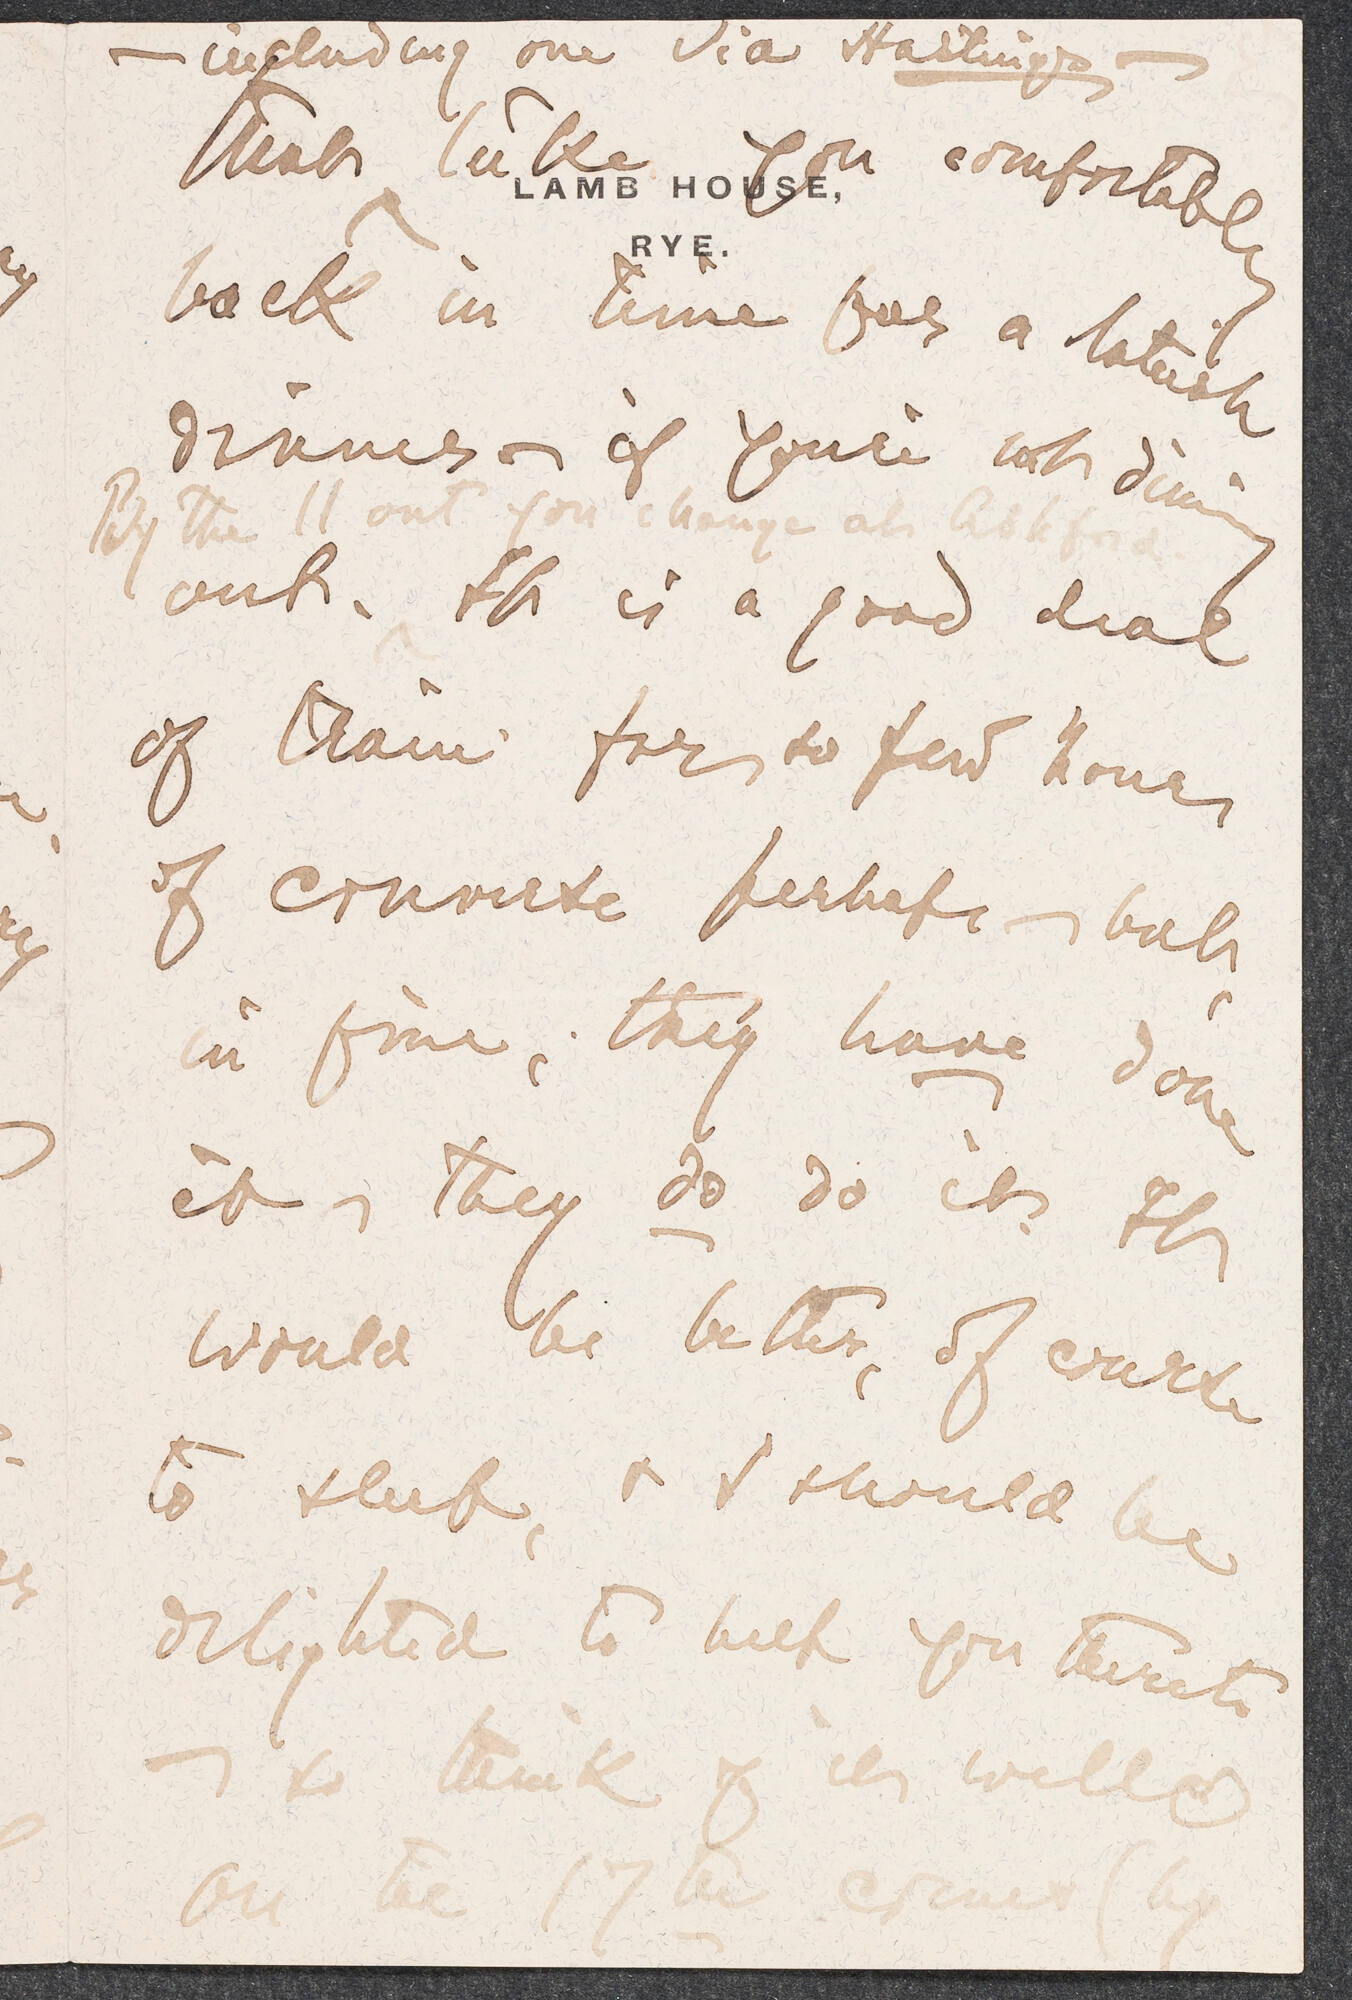 — including one via Hastings —
that take you comfortably
LAMB HOUSE,
RYE.
back in time for a lateish
dinner — if you're not dining
By the 11 out you change at Ashford.
out. It is a good deal
of train for so few hours
of converse perhaps — but,
in fine, they have done
it — they do do it. It
would be better, of course
to sleep, & I should be
delighted to help you thereto
— so think of it well.
On the 17th comes (by